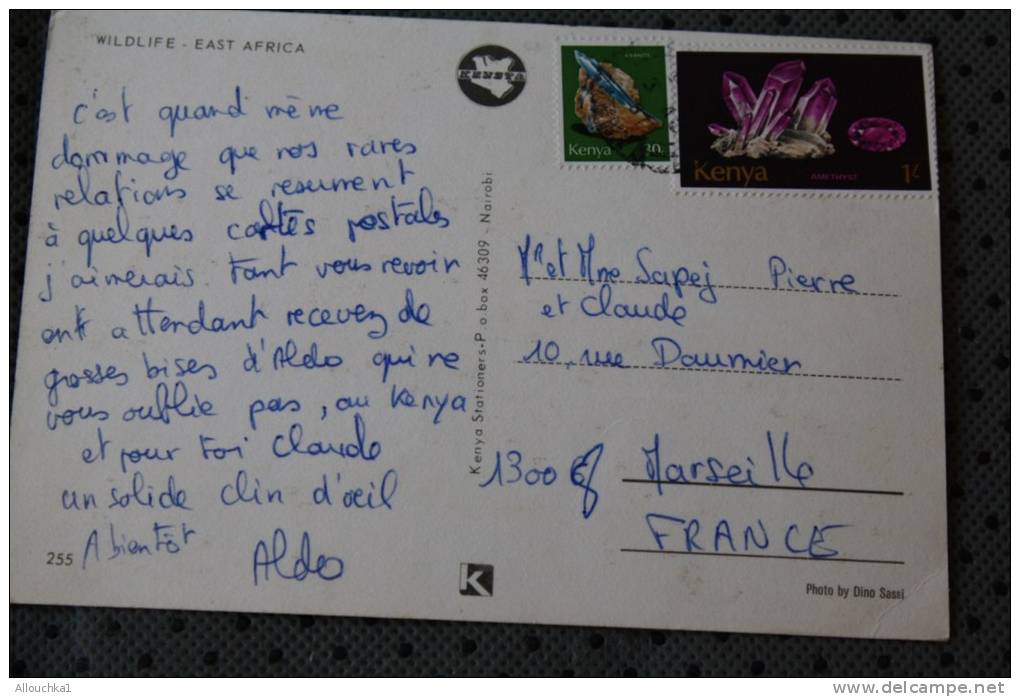 WILDLIFE - EAST AFRICA
c'est quand même
dommage que nos rares
relations se resument
à quelques cartes postales
j'aimerais tant vous revoir
attendant recevez de
grosses bises d'Aldo qui ne
vous oublie pas, au Kenya
et pour toi Claude
un solide clin d'oeil
A bientôt
Aldo
255
KENSTA
Kenya Stationers-P.o.box 46309 - Nairobi
K
KYANITE
Kenya 30c
Kenya
AMETHYST
1/
Mr et Mme Sapej Pierre
et Claude
10, rue Daumier
13008 Marseille
FRANCE
Photo by Dino Sassi
Allouchka1
delcampe.net